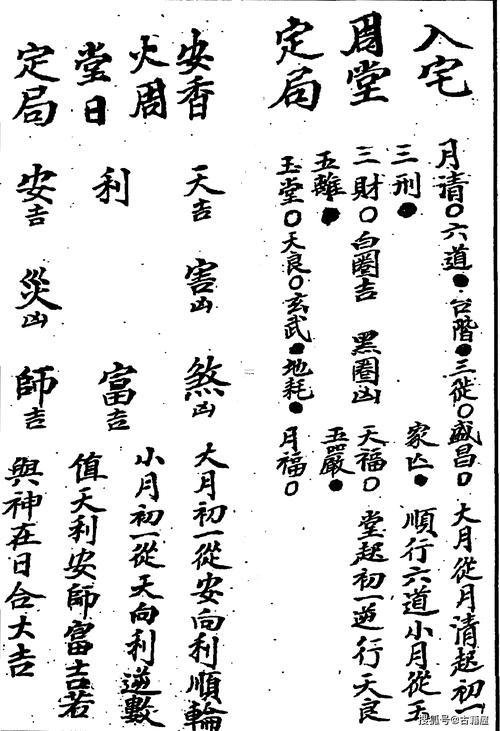 入宅
周堂
定局
月清○六道●台階●三徙○盛昌○
三刑● 家亡●
三財○ 白圈吉 黑圈凶 天福○
五離● 五嚴●
玉堂○天良○玄武●地耗●月福○
大月從月清起初一
順行六道小月從玉
堂起初一逆行天良
安香
火周
堂日
定局
天吉 害凶 煞凶
利 富吉
安吉 災凶 師吉
大月初一從安向利順輪
小月初一從天向利逆數
值天利安師富吉若
與神在日合大吉
搜狐号@古籍屋